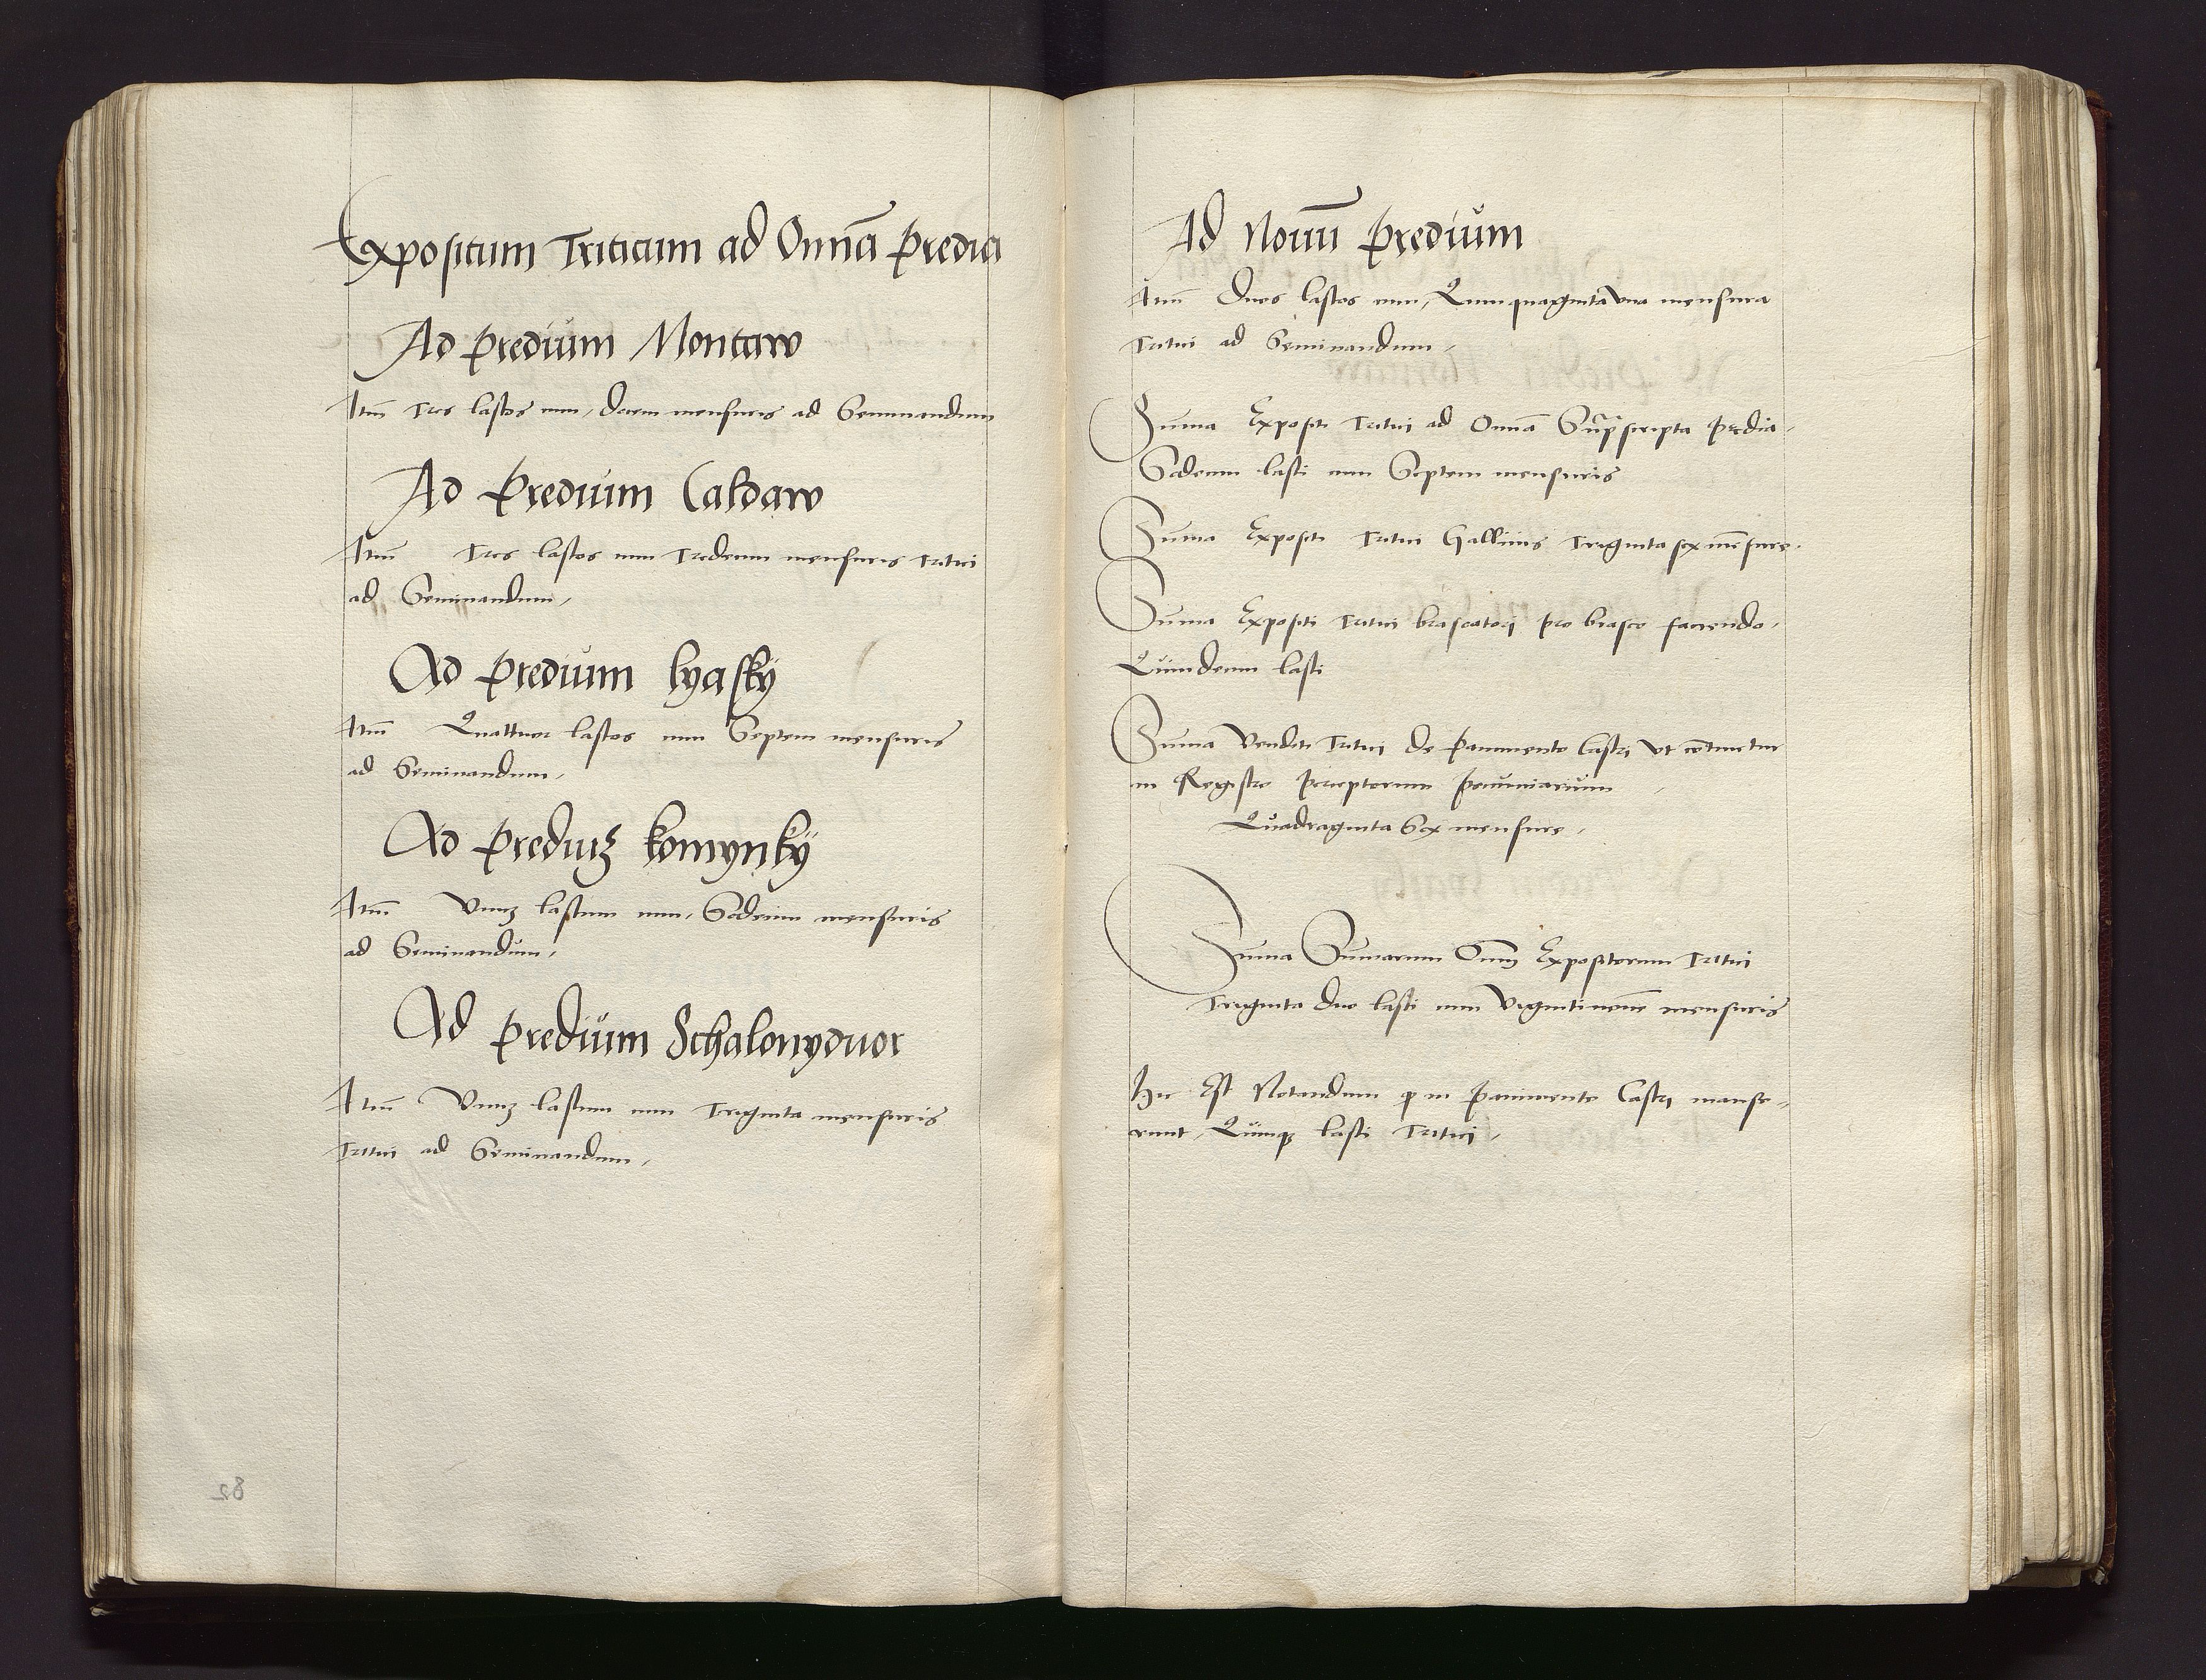 Expositum Triticum ad Omnā Predia
Ad Predium Montaw
Itm̄ Tres lastos cum, decem mensuris ad Seminandum
Ad Predium Caldaw
Itm̄ Tres lastos cum Tredecim mensuris Tritici
ad Seminandum,
Ad Predium lyasky
Itm̄ Quattuor lastos cum Septem mensuris
ad Seminandum,
Ad Prediuꝫ komynky
Itm̄ Vnuꝫ lastum cum, Sedecim mensuris
ad Seminandum,
Ad Predium Schalonyduor
Itm̄ Vnuꝫ lastum cum Triginta mensuris
Tritici ad Seminandum,
82
Ad Nouū Predium
Itm̄ Duos lastos cum, Quinquaginta vna mensura
Tritici ad Seminandum,
Suma Expositi Tritici ad Omnā Sup̄scripta Predia,
Sedecim lasti cum Septem mensuris
Suma Expositi Tritici Gallinis Triginta sex mēsure.
Suma Expositi Tritici braseatorj pro braseo faciendo,
Quindecim lasti
Suma Venditi Tritici de Pauimento Castrj vt cōtinetur
in Registro Perceptorum Pecuniarium,
Quadraginta Sex mensure,
Suma Sumarum Om̄ Expositorum Tritici
Triginta duo lasti cum Viginti nouē mensuris
Hic Est Notandum ꝙ in Pauimento Castrj manse,,
runt, Quinqꝫ lasti Triticj,